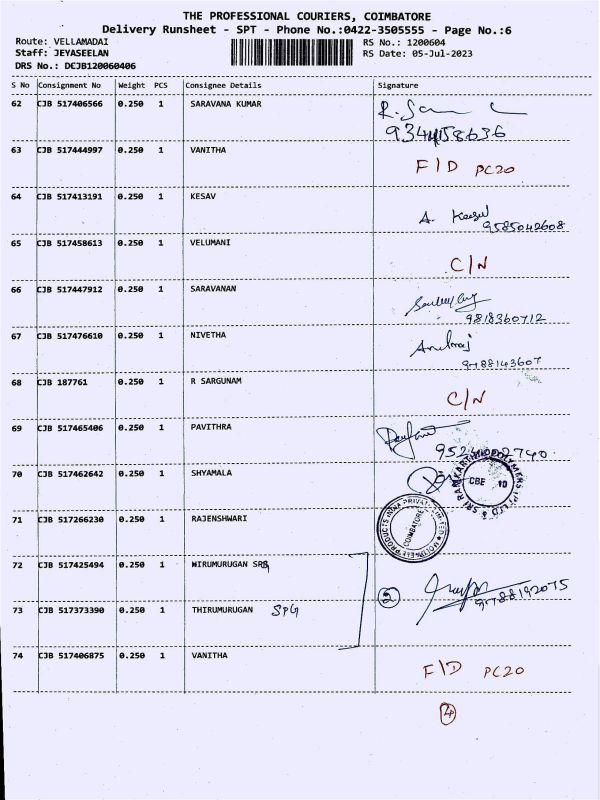 THE PROFESSIONAL COURIERS, COIMBATORE
Delivery Runsheet - SPT - Phone No.:0422-3505555 - Page No.:6
Route: VELLAMADAI RS No.: 1200604
Staff: JEYASEELAN RS Date: 05-Jul-2023
DRS No.: DCJB120060406
S No Consignment No Weight PCS Consignee Details Signature
62 CJB 517406566 0.250 1 SARAVANA KUMAR
63 CJB 517444997 0.250 1 VANITHA F/D PC20
64 CJB 517413191 0.250 1 KESAV A.
9585042608
65 CJB 517458613 0.250 1 VELUMANI C/N
66 CJB 517447912 0.250 1 SARAVANAN
9818360712
67 CJB 517476610 0.250 1 NIVETHA
9788143607
68 CJB 187761 0.250 1 R SARGUNAM C/N
69 CJB 517465406 0.250 1 PAVITHRA
70 CJB 517462642 0.250 1 SHYAMALA CBE
71 CJB 517266230 0.250 1 RAJENSHWARI COIMBATORE
72 CJB 517425494 0.250 1 2
9788192075
73 CJB 517373390 0.250 1 THIRUMURUGAN SPG
74 CJB 517406875 0.250 1 VANITHA F/D PC20
4